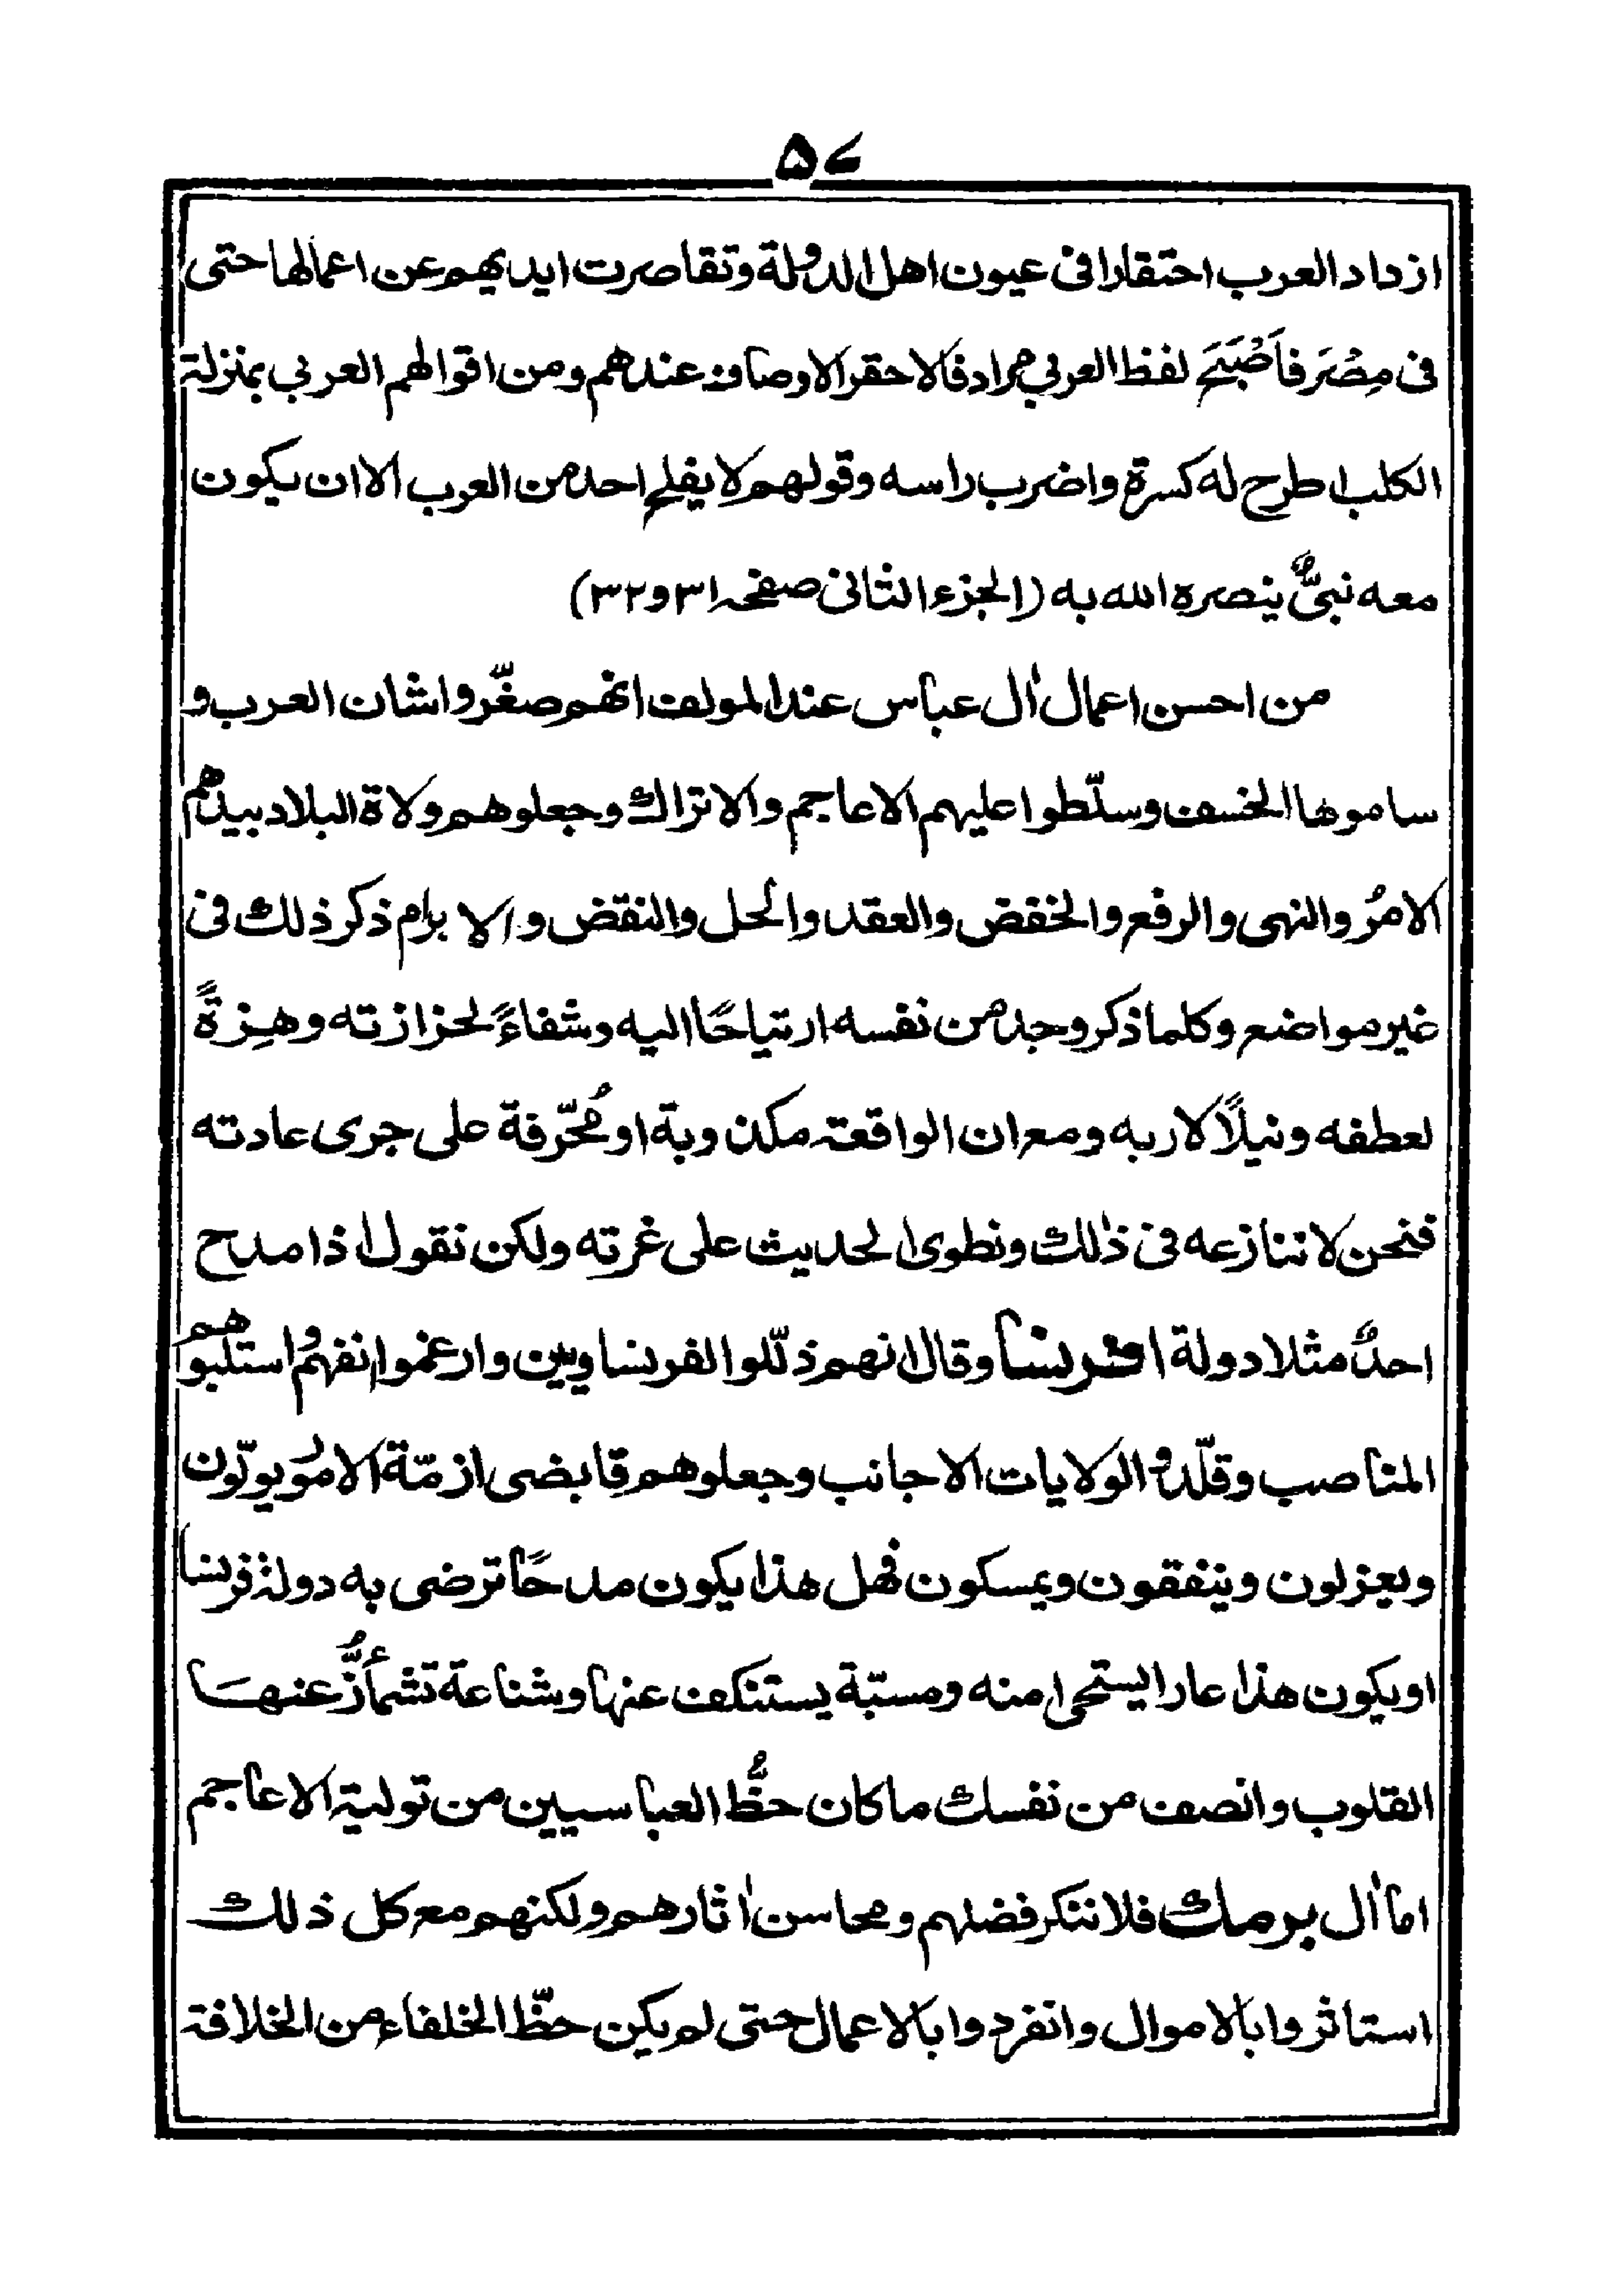 ۵۷
ازداد العرب احتقارا فى عيون اهل الدولة وتقاصرت ايديهم عن اعمالها حتى
فى مِصْرَ فاَصْبَحَ لفظ العربي مرادفا لاحقر الاوصاف عندهم ومن اقوالهم العربي بمنزلة
الكلب اطرح له كسرة واضرب راسه وقولهم لا يفلح احد من العرب الا ان يكون
معه نبىٌّ ينصره الله به (الجزء الثانى صفحه ۳۱ و۳۲)
من احسن اعمال اٰل عباس عند المولف انهم صغّروا شان العرب و
ساموها الخسف وسلّطوا عليهم الاعاجم والاتراك وجعلوهم ولاة البلاد بيدهم
الامرُ والنهى والرفع والخفض والعقد والحل والنقض والابرام ذكر ذلك فى
غير مواضع وكلما ذكر وجد من نفسه ارتياحًا اليه وشفاءً لحزازته وهِزةً
لعطفه ونيلًا لاربه ومع ان الواقعة مكذوبة او مُحرّفة على جرى عادته
فنحن لا ننازعه فى ذٰلك ونطوى الحديث على غرته ولكن نقول اذا مدح
احدٌ مثلا دولة افرنسا وقال انهم ذلّلوا الفرنساويين وارغموا انفهم واستلبوا هم
المناصب وقلّدوا الولايات الاجانب وجعلوهم قابضى ازمّة الامور يولّون
ويعزلون وينفقون ويمسكون فهل هذا يكون مدحًا ترضى به دولة فرنسا
او يكون هذا عارا يستحى منه ومسبّة يستنكف عنها وشناعة تشمأزُّ عنها
القلوب وانصف من نفسك ما كان حظُّ العباسيين من تولية الاعاجم
اما اٰل برمك فلا ننكر فضلهم ومحاسن اٰثارهم ولكنهم مع كل ذلك
استاثروا بالاموال وانفردوا بالاعمال حتى لم يكن حظّ الخلفاء من الخلافة